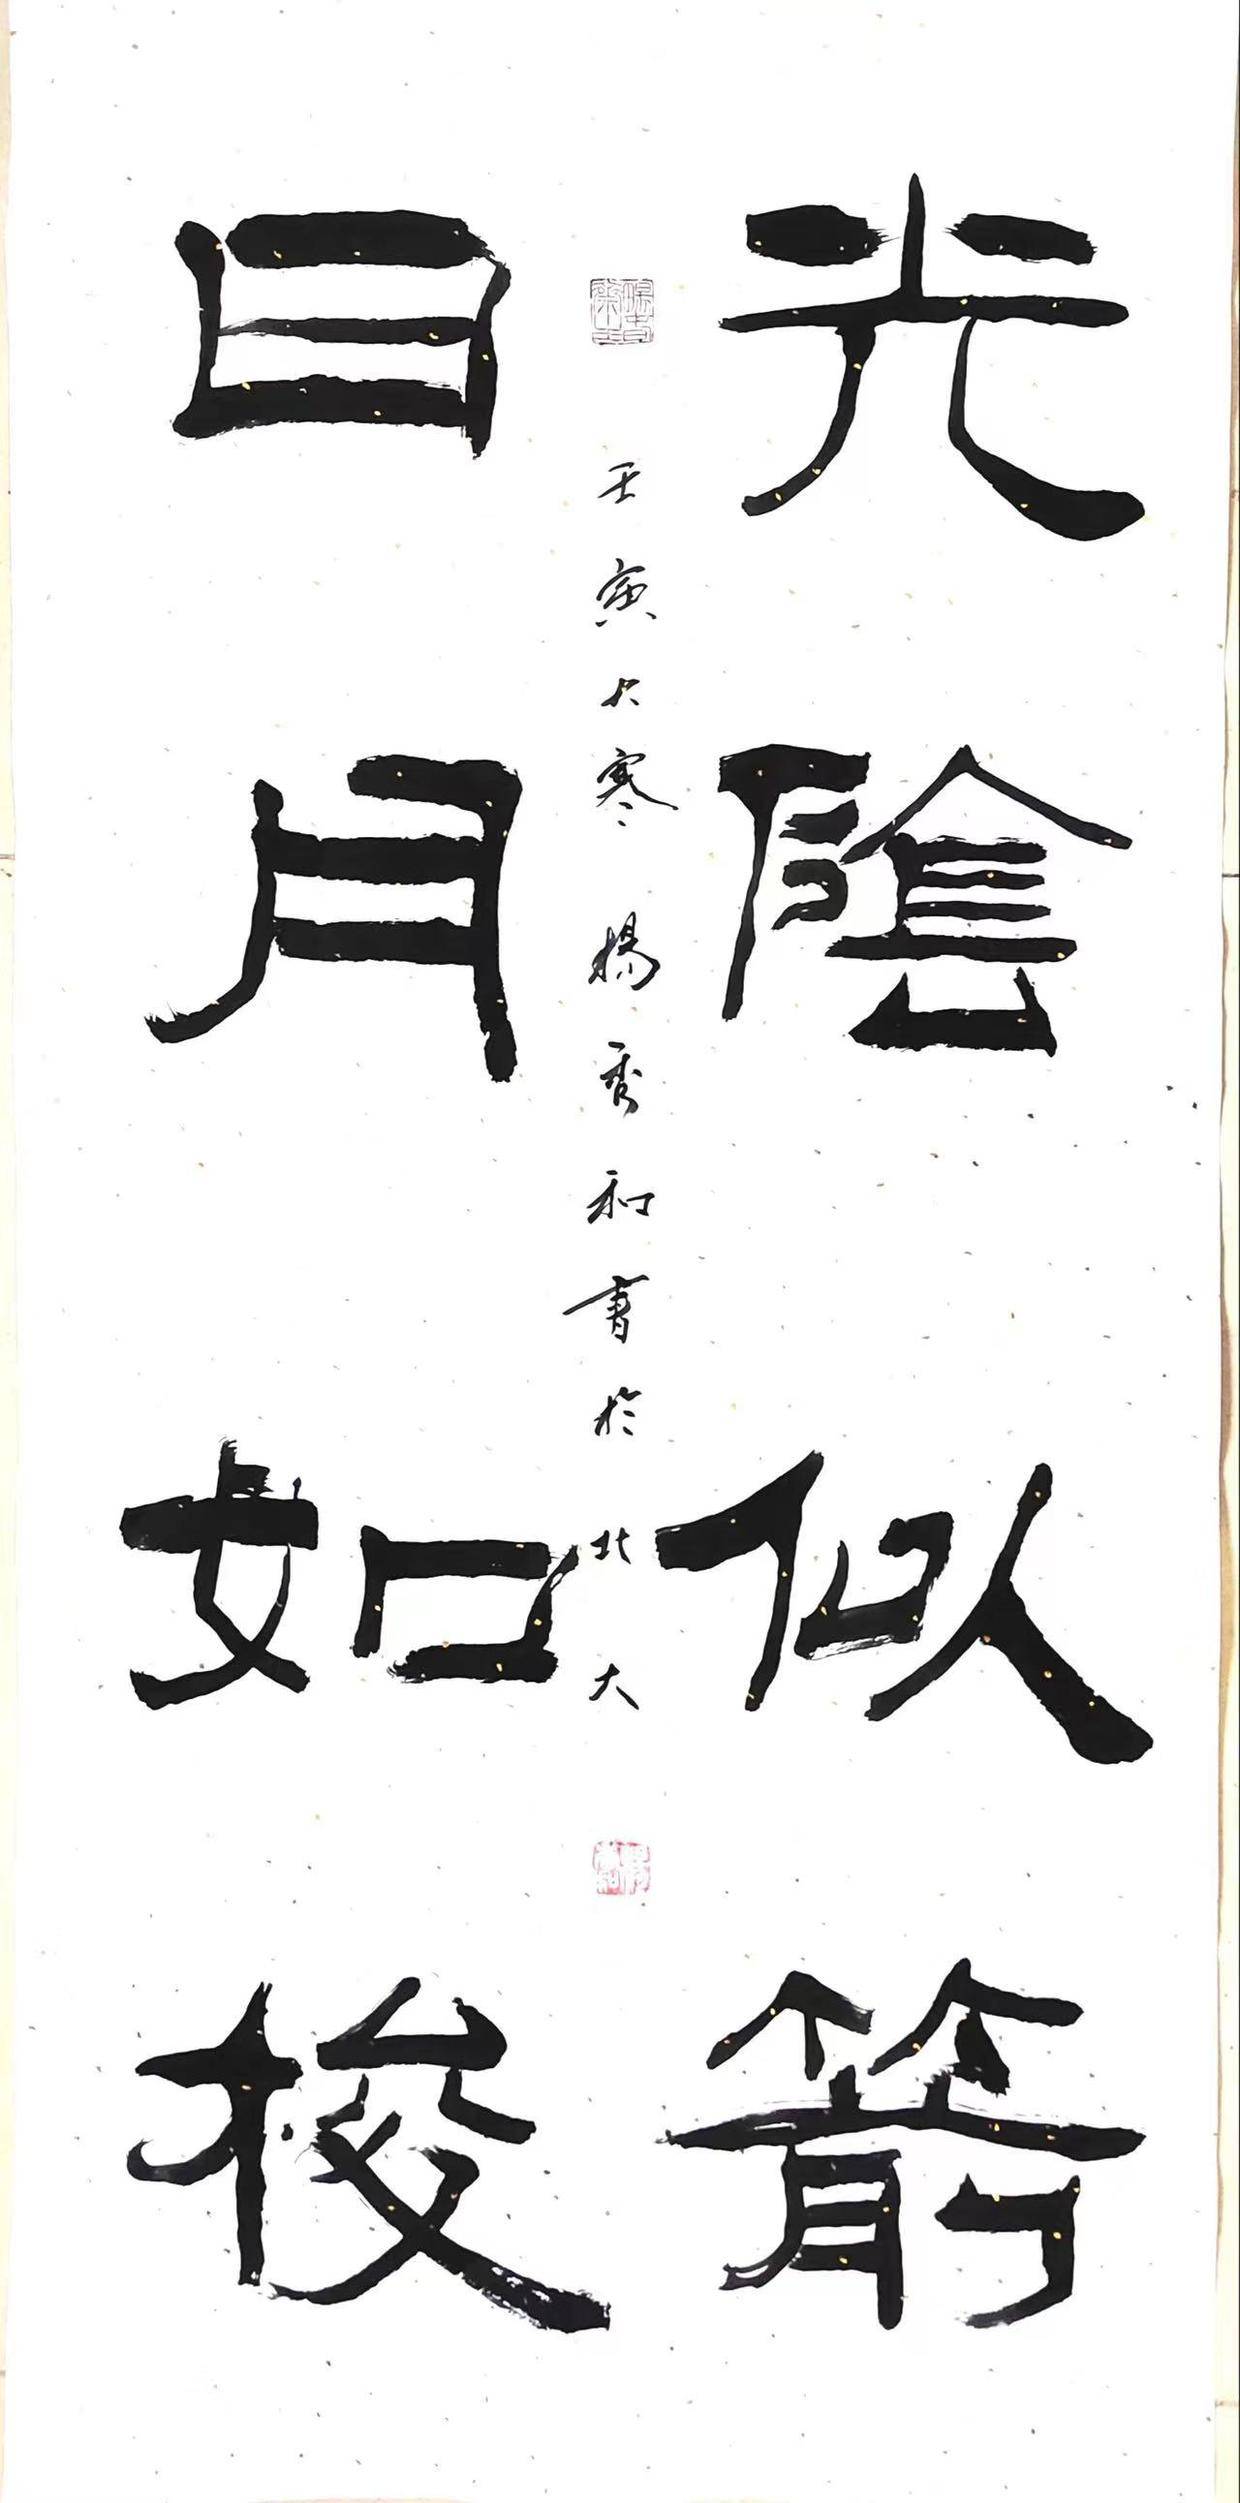 光陰似箭
日月如梭
壬寅大寒楊秀和書於北大